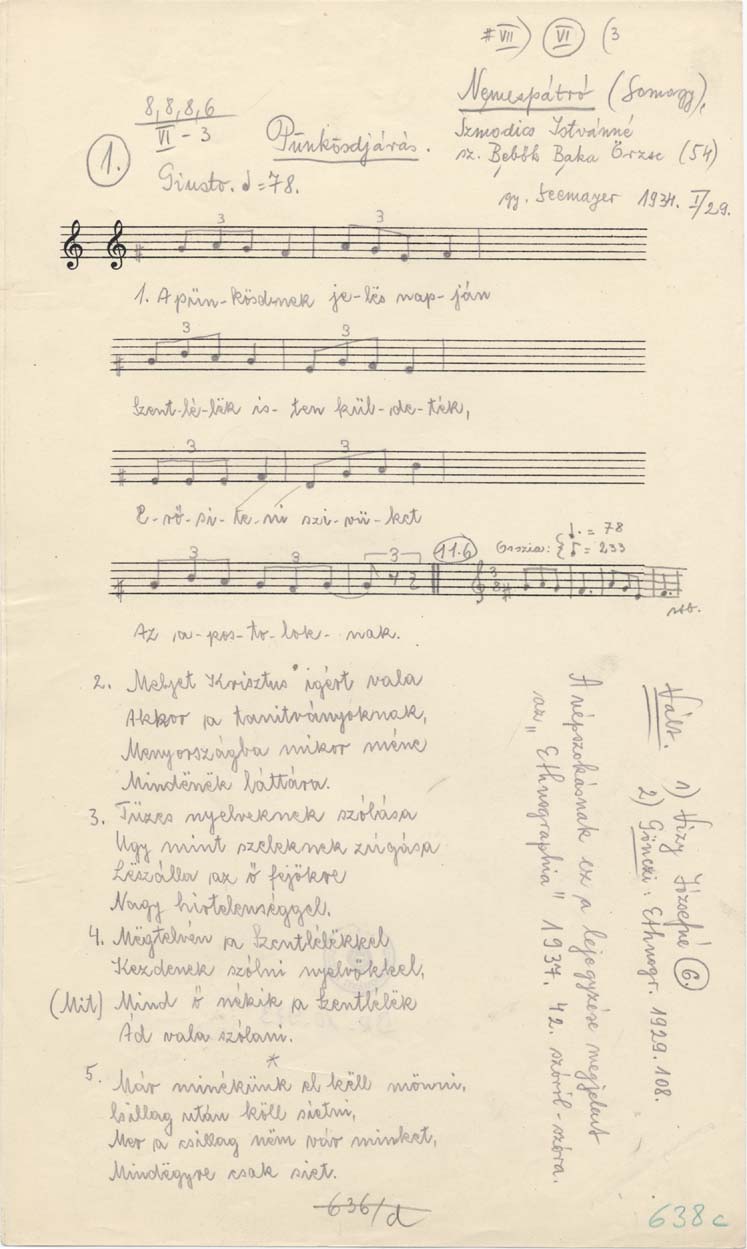 #VII) VI (3
8,8,8,6
VI - 3
1.
Pünkösdjárás.
Giusto. = 78.
Nemespátró (Somogy),
Szmodics Istvánné
sz. Bebők Baka Örzse (54)
gy. Seemayer 1934. I/29.
3 3
1. A pün-kösdnek je-lës nap-ján
3 3
Szent-lé-lëk is-ten kül-de-ték,
3 3
E-rő-si-te-ni szi-vü-ket
11.6 Osszia: = 78
= 233
3 3 3
3
8
stb.
Az a-pos-to-lok-nak.
2. Melyet Krisztus igért vala
Akkor a tanitványoknak,
Menyországba mikor méne
Mindënëk láttára.
3. Tüzes nyelveknek szólása
Ugy mint szeleknek zúgása
Lëszálla az ő fejökre
Nagy hirtelenséggel.
4. Mëgtelvén a Szentlélëkkel
Kezdenek szólni nyelvökkel,
(Mit) Mind ő nékik a Szentlélëk
Ád vala szólani.
*
5. Már minékünk el këll mönni,
Csillag után köll sietni,
Mer a csillag nëm vár minket,
Mindëgyre csak siet.
Vált. 1) Vizy Józsefné 6.
2) Gönczi: Ethnogr. 1929. 108.
A népszokásnak ez a lejegyzése megjelent
az "Ethnographia" 1937. 42. szóról-szóra.
636/d
638c